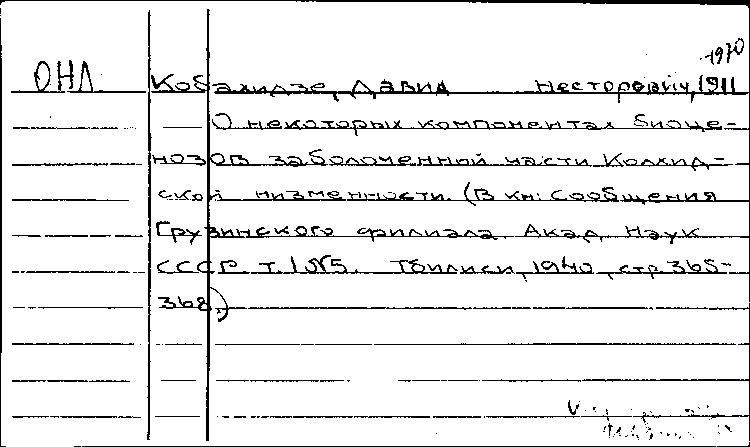 -1970
ОНЛ Кобахидзе, Давид Несторович, 1911
О некоторых компонентах биоце-
нозов заболоченной части Колхид-
ской низменности. (В кн: Сообщения
Грузинского филиала Акад. Наук
СССР т. 1 №5. Тбилиси, 1940, стр. 365-
368.)